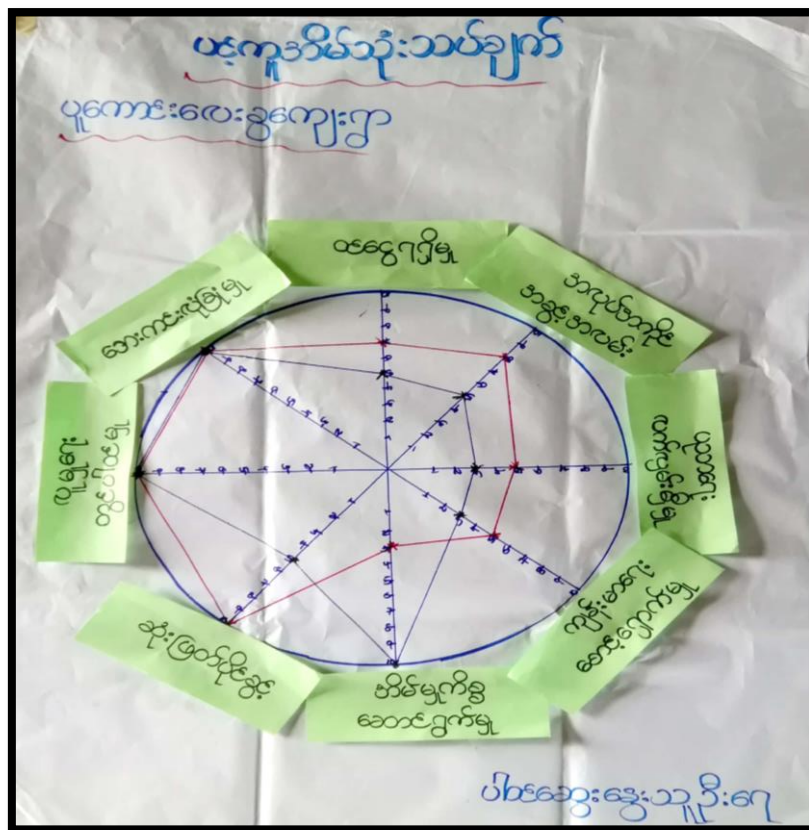 ပင့်ကူအိမ်သုံးသပ်ချက်
ပူကောင်းလေးခွကျေးရွာ
ဝင်ငွေရရှိမှု
အလုပ်အကိုင်
အခွင့်အလမ်း
ပညာရေး
လက်လှမ်းမှီမှု
ကျန်းမာရေး
စောင့်ရှောက်မှု
အိမ်မှုကိစ္စ
ဆောင်ရွက်မှု
ဆုံးဖြတ်ပိုင်ခွင့်
လူမှုရေး
တွင်ပါဝင်မှု
ဘေးကင်းလုံခြုံမှု
ပါဝင်ဆွေးနွေးသူဦးရေ